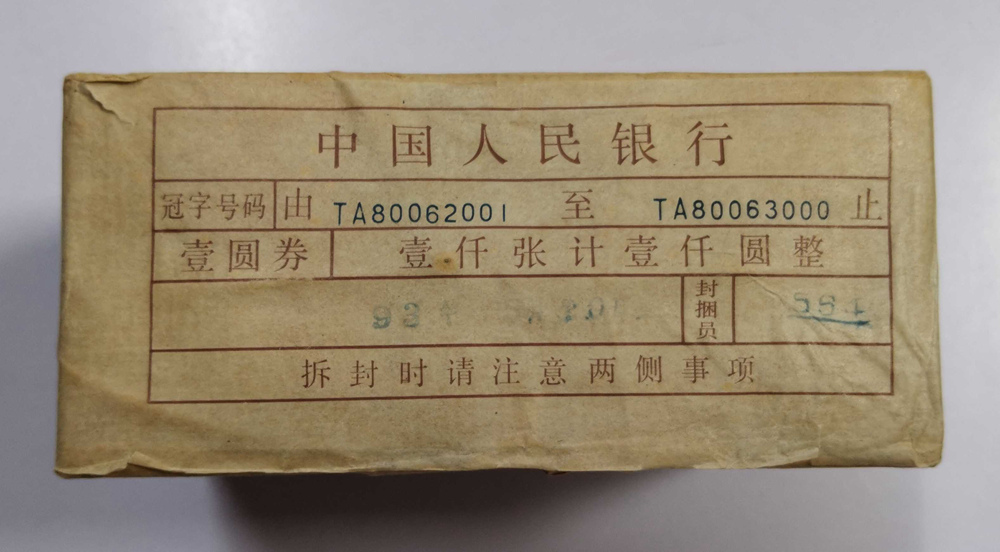 中国人民银行
冠字号码 由 TA80062001 至 TA80063000 止
壹圆券 壹仟张计壹仟圆整
93 封捆员
拆封时请注意两侧事项